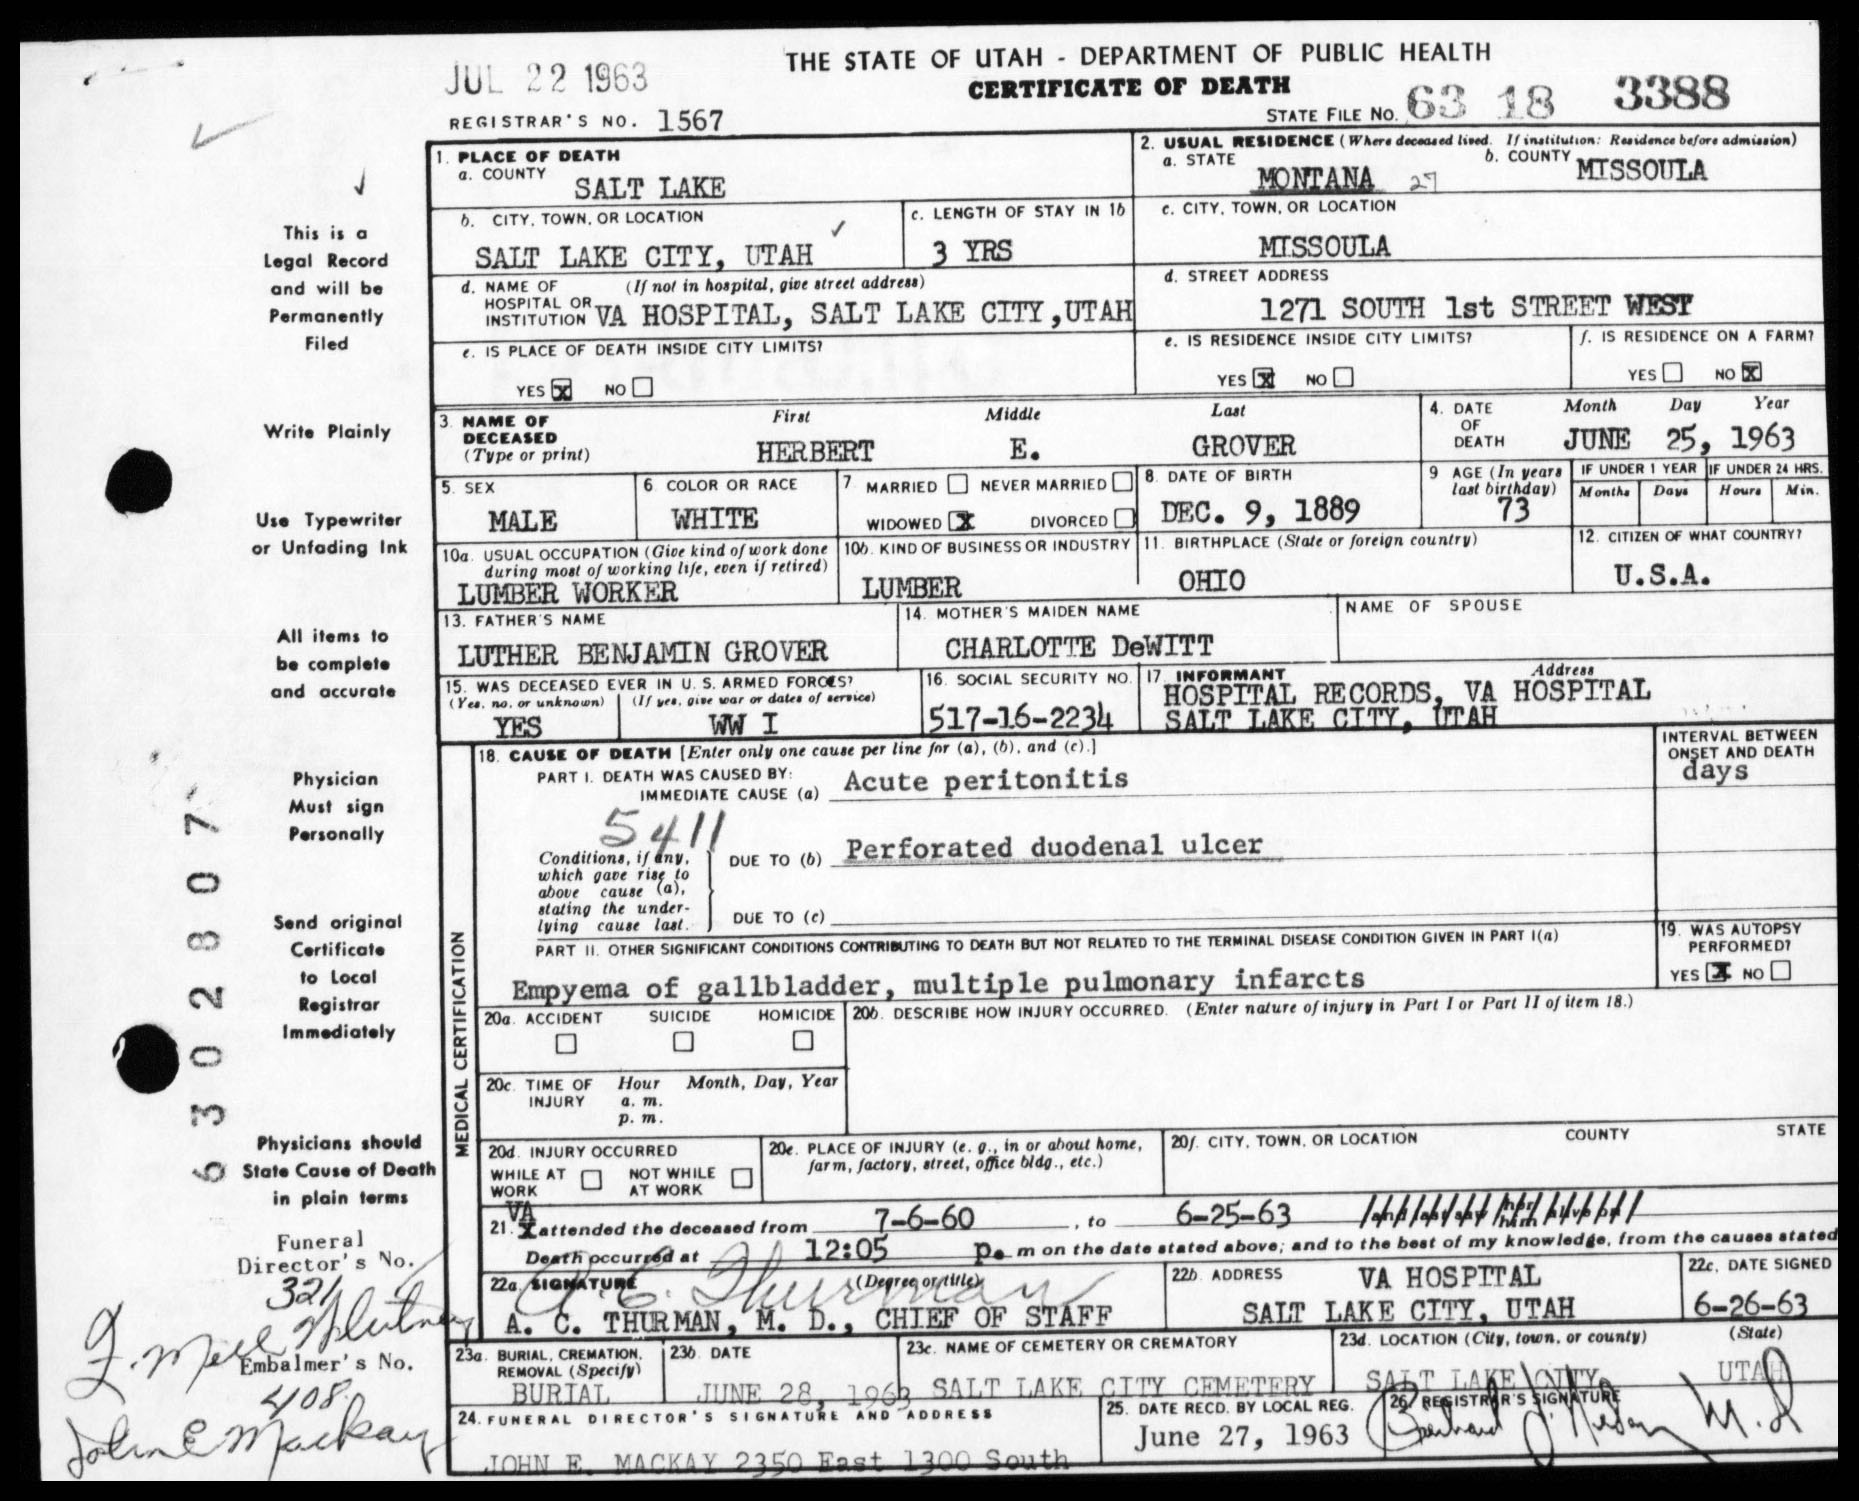 JUL 22 1963
THE STATE OF UTAH - DEPARTMENT OF PUBLIC HEALTH
CERTIFICATE OF DEATH
REGISTRAR'S NO. 1567
STATE FILE NO. 63 18 3388
1. PLACE OF DEATH
a. COUNTY SALT LAKE
2. USUAL RESIDENCE (Where deceased lived. If institution: Residence before admission)
a. STATE MONTANA 27 b. COUNTY MISSOULA
b. CITY, TOWN, OR LOCATION SALT LAKE CITY, UTAH
c. LENGTH OF STAY IN 1b 3 YRS
c. CITY, TOWN, OR LOCATION MISSOULA
d. NAME OF HOSPITAL OR INSTITUTION (If not in hospital, give street address)
VA HOSPITAL, SALT LAKE CITY, UTAH
d. STREET ADDRESS
1271 SOUTH 1st STREET WEST
e. IS PLACE OF DEATH INSIDE CITY LIMITS?
YES X NO
e. IS RESIDENCE INSIDE CITY LIMITS?
YES X NO
f. IS RESIDENCE ON A FARM?
YES NO X
3. NAME OF DECEASED (Type or print)
First Middle Last
HERBERT E. GROVER
4. DATE OF DEATH Month Day Year
JUNE 25, 1963
5. SEX MALE
6. COLOR OR RACE WHITE
7. MARRIED NEVER MARRIED
WIDOWED X DIVORCED
8. DATE OF BIRTH DEC. 9, 1889
9 AGE (In years last birthday) 73
IF UNDER 1 YEAR Months Days
IF UNDER 24 HRS. Hours Min.
10a. USUAL OCCUPATION (Give kind of work done during most of working life, even if retired)
LUMBER WORKER
10b. KIND OF BUSINESS OR INDUSTRY LUMBER
11. BIRTHPLACE (State or foreign country) OHIO
12. CITIZEN OF WHAT COUNTRY? U.S.A.
13. FATHER'S NAME LUTHER BENJAMIN GROVER
14. MOTHER'S MAIDEN NAME CHARLOTTE DeWITT
NAME OF SPOUSE
15. WAS DECEASED EVER IN U. S. ARMED FORCES?
(Yes, no, or unknown) (If yes, give war or dates of service)
YES WW I
16. SOCIAL SECURITY NO. 517-16-2234
17. INFORMANT Address
HOSPITAL RECORDS, VA HOSPITAL
SALT LAKE CITY, UTAH
MEDICAL CERTIFICATION
18. CAUSE OF DEATH [Enter only one cause per line for (a), (b), and (c).]
PART I. DEATH WAS CAUSED BY:
IMMEDIATE CAUSE (a) Acute peritonitis
INTERVAL BETWEEN ONSET AND DEATH
days
5411
Conditions, if any, which gave rise to above cause (a), stating the underlying cause last.
DUE TO (b) Perforated duodenal ulcer
DUE TO (c)
PART II. OTHER SIGNIFICANT CONDITIONS CONTRIBUTING TO DEATH BUT NOT RELATED TO THE TERMINAL DISEASE CONDITION GIVEN IN PART I(a)
Empyema of gallbladder, multiple pulmonary infarcts
19. WAS AUTOPSY PERFORMED?
YES X NO
20a. ACCIDENT SUICIDE HOMICIDE
20b. DESCRIBE HOW INJURY OCCURRED. (Enter nature of injury in Part I or Part II of item 18.)
20c. TIME OF INJURY Hour Month, Day, Year
a. m.
p. m.
20d. INJURY OCCURRED
WHILE AT WORK NOT WHILE AT WORK
20e. PLACE OF INJURY (e. g., in or about home, farm, factory, street, office bldg., etc.)
20f. CITY, TOWN, OR LOCATION COUNTY STATE
VA
21. X attended the deceased from 7-6-60, to 6-25-63 and last saw her him alive on
Death occurred at 12:05 p. m on the date stated above; and to the best of my knowledge, from the causes stated
22a. SIGNATURE (Degree or title)
A C Thurman
A. C. THURMAN, M. D., CHIEF OF STAFF
22b. ADDRESS VA HOSPITAL
SALT LAKE CITY, UTAH
22c. DATE SIGNED
6-26-63
23a. BURIAL, CREMATION, REMOVAL (Specify)
BURIAL
23b. DATE
JUNE 28, 1963
23c. NAME OF CEMETERY OR CREMATORY
SALT LAKE CITY CEMETERY
23d. LOCATION (City, town, or county) (State)
SALT LAKE CITY UTAH
24. FUNERAL DIRECTOR'S SIGNATURE AND ADDRESS
JOHN E. MACKAY 2350 East 1300 South
25. DATE RECD. BY LOCAL REG.
June 27, 1963
26. REGISTRAR'S SIGNATURE
M.D
This is a
Legal Record
and will be
Permanently
Filed
Write Plainly
Use Typewriter
or Unfading Ink
All items to
be complete
and accurate
Physician
Must sign
Personally
Send original
Certificate
to Local
Registrar
Immediately
Physicians should
State Cause of Death
in plain terms
6302807
Funeral
Director's No.
321
Embalmer's No.
408
John E Mackay